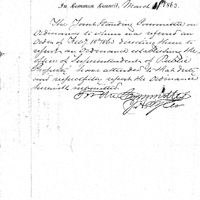 In Common Council, March 1863.
The Joint Standing Committee on
Ordinances to whom was referred an
Order of Feby 12 1863 directing them to
report an ordinance establishing the
office of Superintendent of Public
Property, have attended to that duty
and respectfully report the Ordinance
herewith submitted.
For the Committee